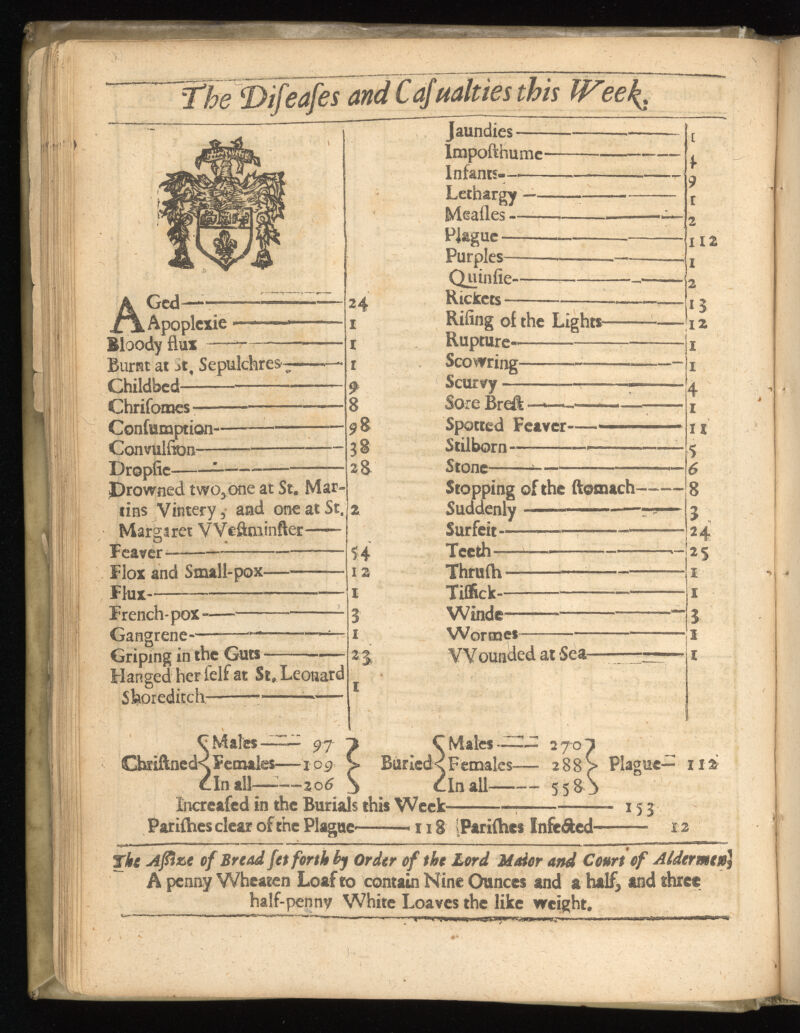 The Diſeaſes and Caſualties this Week.
AGed 24
Apoplexie 1
Bloody flux 1
Burnt at St. Sepulchres 1
Childbed 9
Chriſomes 8
Conſumption 98
Convulſion 38
Dropſie 28
Drowned two, one at St. Mar-
tins Vintery, and one at St. 2
Margaret VVeſtminſter
Feaver 54
Flox and Small-pox 12
Flux 1
French-pox 3
Gangrene 1
Griping in the Guts 23
Hanged her ſelf at St. Leonard
Shoreditch 1
Jaundies 1
Impoſthume 1
Infants 9
Lethargy 1
Meaſles 2
Plague 112
Purples 1
Quinſie 2
Rickets 13
Riſing of the Lights 12
Rupture 1
Scowring 1
Scurvy 4
Sore Breſt 1
Spotted Feaver 11
Stilborn 5
Stone 6
Stopping of the ſtomach 8
Suddenly 3
Surfeit 24
Teeth 25
Thruſh 1
Tiſſick 1
Winde 3
Wormes 1
VVounded at Sea 1
Males 97 Males 270
Chriſtned Females 109 Buried Females 288 Plague 112
In all 206 In all 558
Increaſed in the Burials this Week 153
Pariſhes clear of the Plague 118 Pariſhes Infected 12
The Aſſize of Bread ſet forth by Order of the Lord Maior and Court of Aldermen,
A penny Wheaten Loaf to contain Nine Ounces and a half, and three
half-penny White Loaves the like weight.